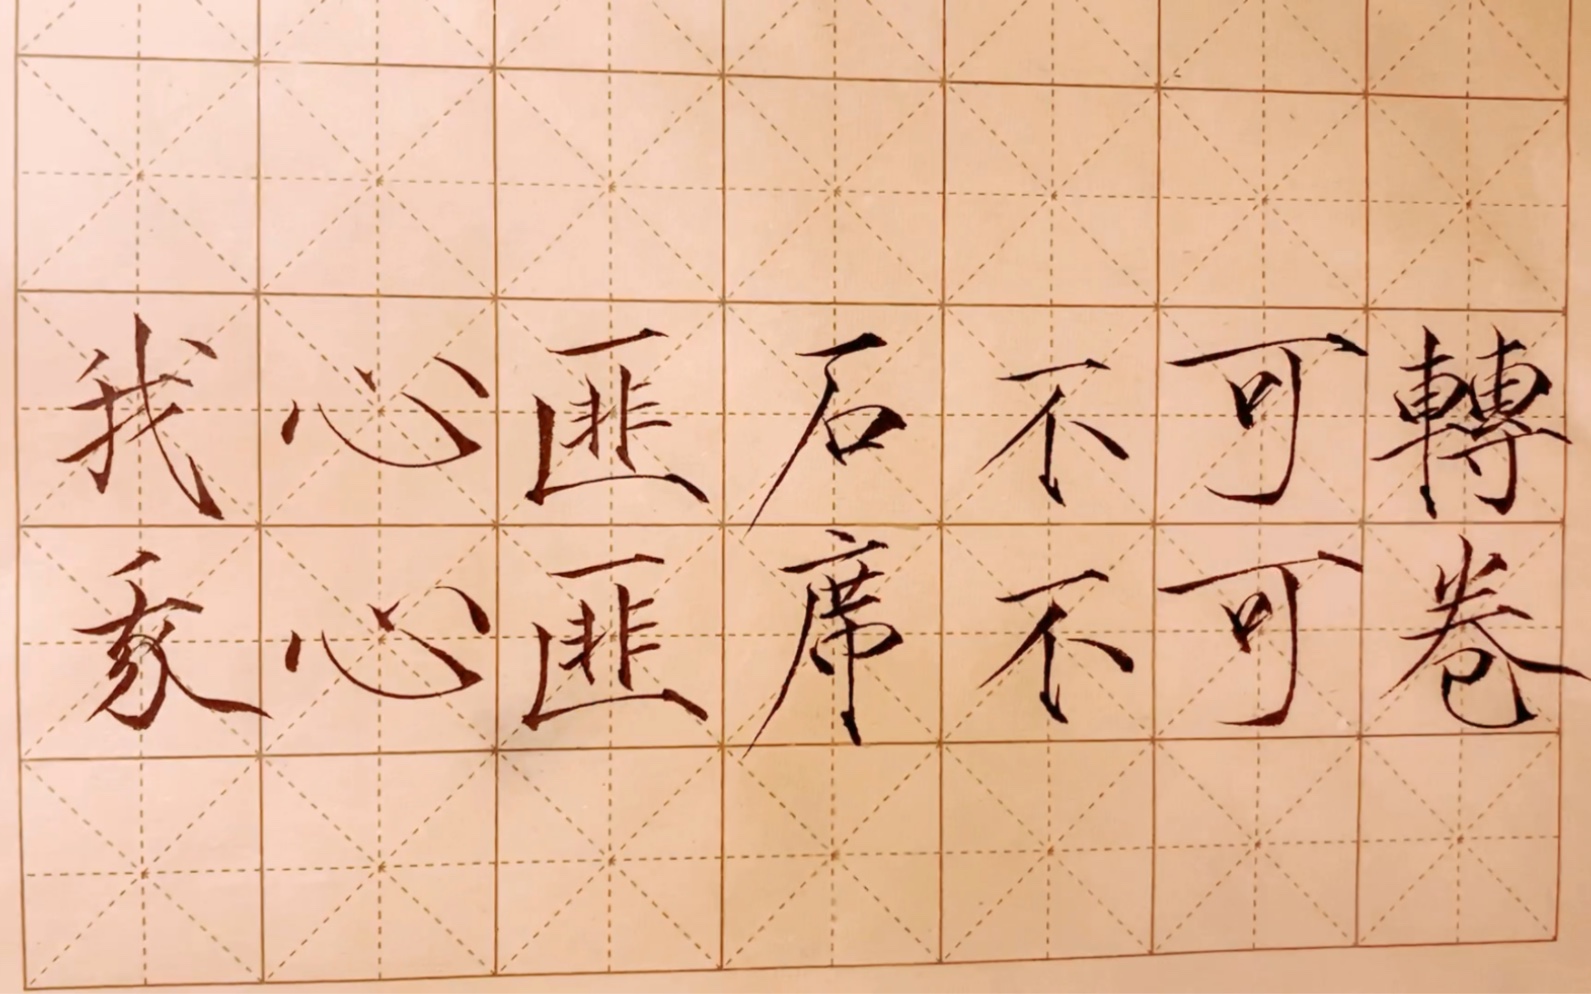 我心匪石不可轉
心匪席不可卷